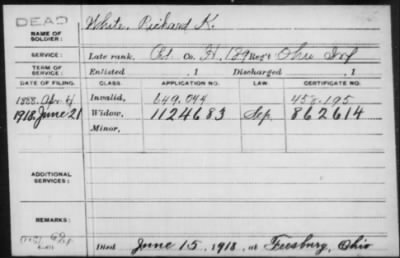 DEAD
NAME OF SOLDIER: White Richard K.
SERVICE: Late rank, Pt. Co. H, 189 Reg't Ohio Inf
TERM OF SERVICE: Enlisted , 1 Discharged , 1
DATE OF FILING. CLASS. APPLICATION NO. LAW. CERTIFICATE NO.
1888. Apr. 4 Invalid, 649.044 458.195
1918. June 21 Widow, 1124683 Sep. 862614
Minor,
ADDITIONAL SERVICES:
REMARKS:
Died June 15, 1918, at Feesburg, Ohio